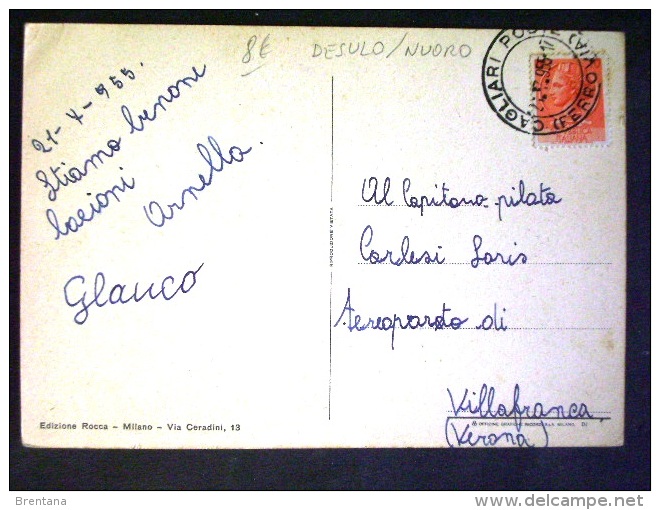 8€ DESULO/NUORO
CAGLIARI POSTE (VIA FERRO
21-X-955.
Stiamo benone
bacioni
Ornella.
Glauco
Al Capitano pilota
Cardesi Loris
Aereoporto di
Villafranca
(Verona)
Edizione Rocca - Milano - Via Ceradini, 13
Brentana
delcampe.net